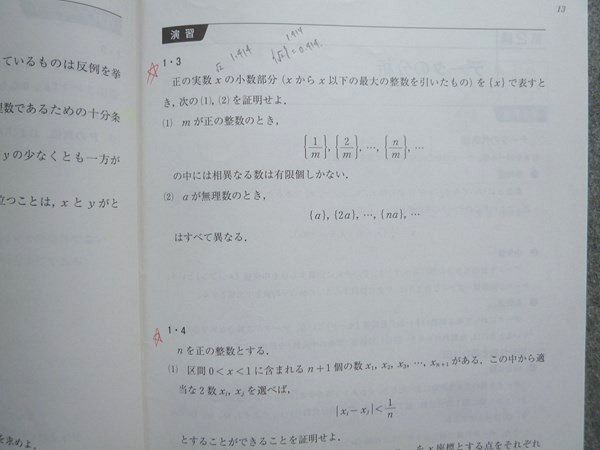 13
演習
√2 1.414
1.414
{√2} = 0.414
ているものは反例を挙
1・3
正の実数 x の小数部分 (x から x 以下の最大の整数を引いたもの) を {x} で表すと
き, 次の (1), (2) を証明せよ.
理数であるための十分条
(1) m が正の整数のとき,
{1/m}, {2/m}, …, {n/m}, …
y の少なくとも一方が
の中には相異なる数は有限個しかない.
(2) a が無理数のとき,
立つことは, x と y がと
{a}, {2a}, …, {na}, …
はすべて異なる.
1・4
n を正の整数とする.
(1) 区間 0<x<1 に含まれる n+1 個の数 x₁, x₂, x₃, …, xₙ₊₁ がある. この中から適
当な 2 数 xᵢ, xⱼ を選べば,
|xᵢ−xⱼ|<1/n
とすることができることを証明せよ.
を求めよ.
を x 座標とする点をそれぞれ